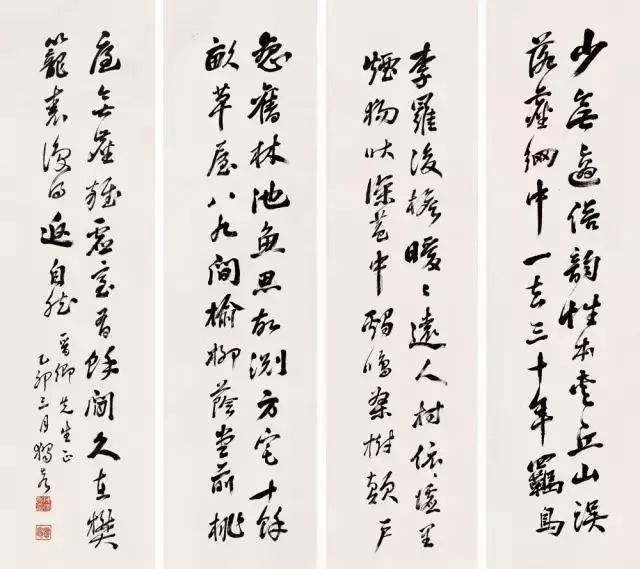 少無適俗韻性本愛丘山誤
落塵網中一去三十年羈鳥
李羅後檐曖〻遠人村依〻墟里
煙狗吠深巷中雞鳴桑樹顛戶
戀舊林池魚思故淵方宅十餘
畝草屋八九間榆柳蔭堂前桃
庭無塵雜虛室有餘閒久在樊
籠裏復得返自然
晉卿先生正
乙卯三月